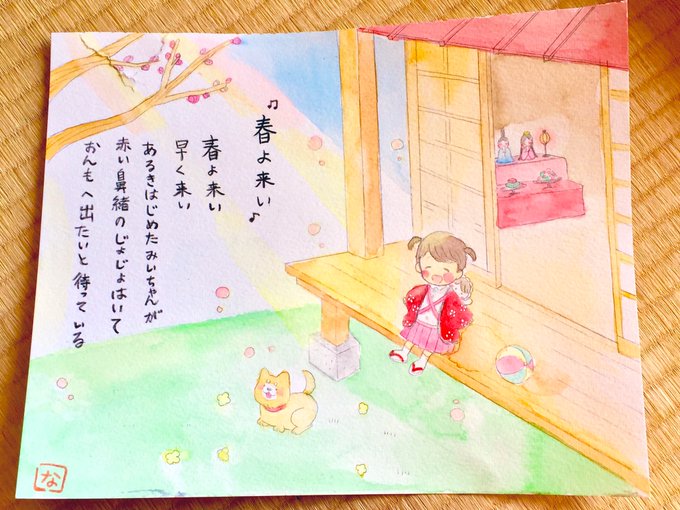 ♫春よ来い♪
春よ来い
早く来い
あるきはじめたみいちゃんが
赤い鼻緒のじょじょはいて
おんもへ出たいと待っている
な